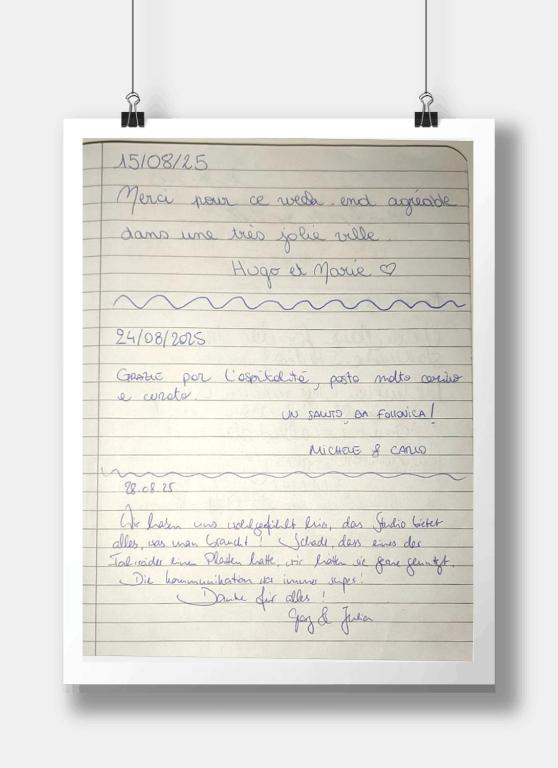 15/08/25
Merci pour ce week end agréable
dans une très jolie ville.
Hugo et Marie ♡
24/08/2025
GRAZIE per l'ospitalité, posto molto carino
e curato.
UN SALUTO DA FOLLONICA!
MICHELE & CARLO
28.08.25
Wir haben uns wohlgefühlt hier, das Studio bietet
alles, was man braucht! Schade, dass eines der
Fahrräder einen Platten hatte, wir hätten sie gerne genutzt.
Die Kommunikation war immer super!
Danke für alles!
& Julia